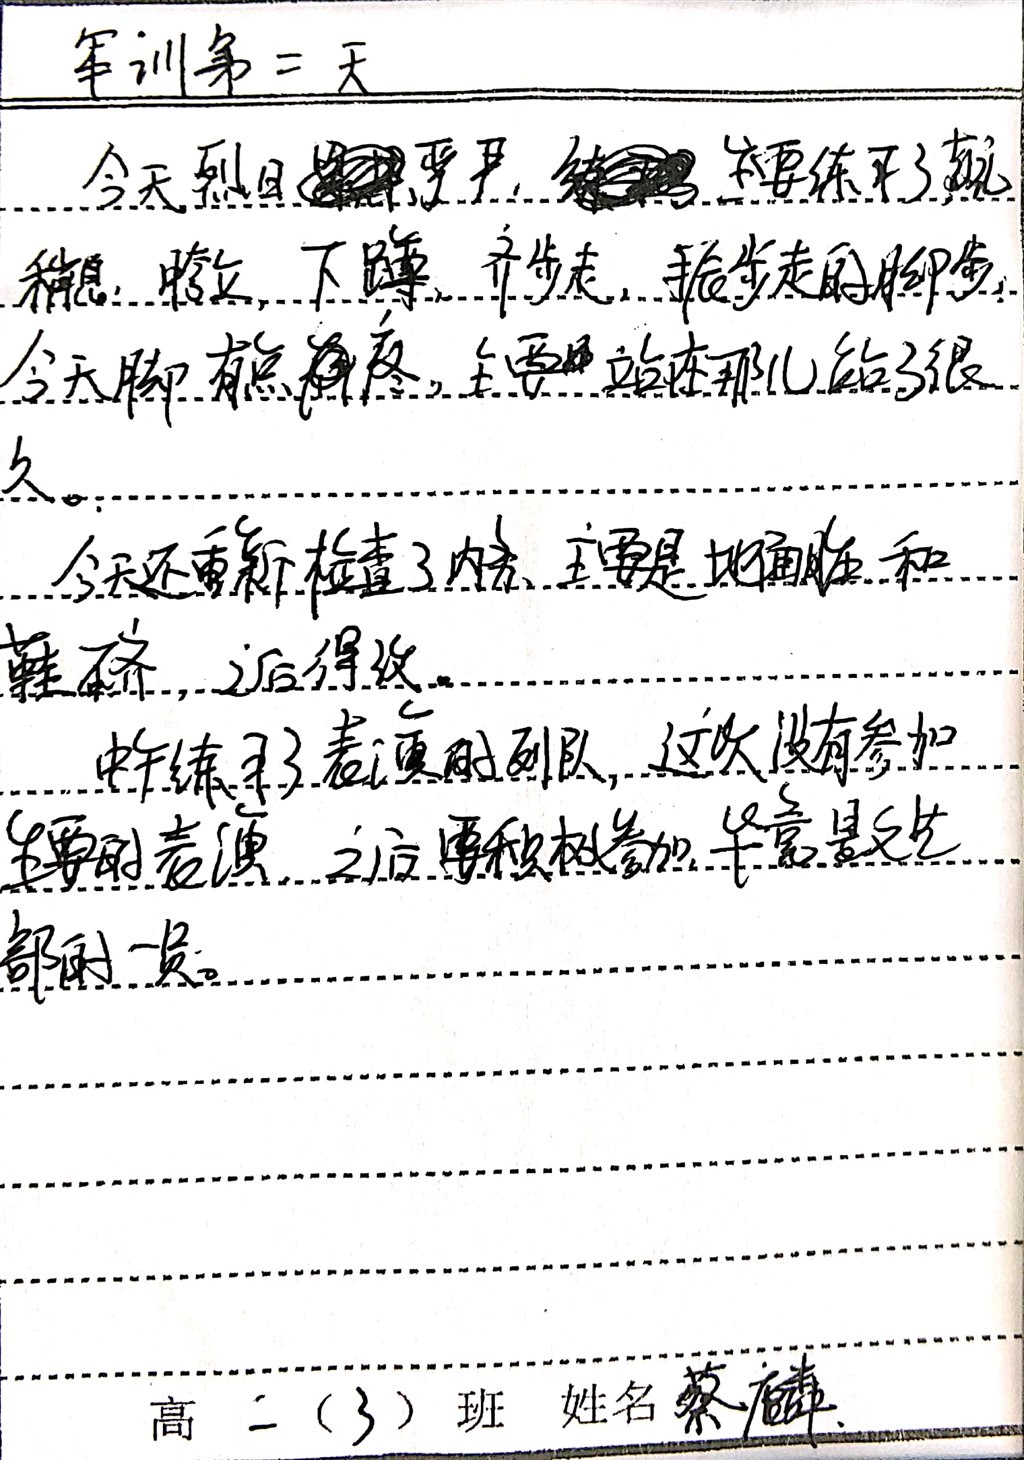 军训第二天
今天烈日严严，主要练习了
稍息，跨立，下蹲，齐步走，步走的脚步，
今天脚有点疼，主要站在那儿站了很
久。
今天还重新检查了内务，主要是地面脏和
鞋不齐，之后得改。
中午练习了表演的列队，这次没有参加
主要的表演，之后要积极参加，毕竟是文艺
部的一员。
高二（3）班 姓名 蔡麟